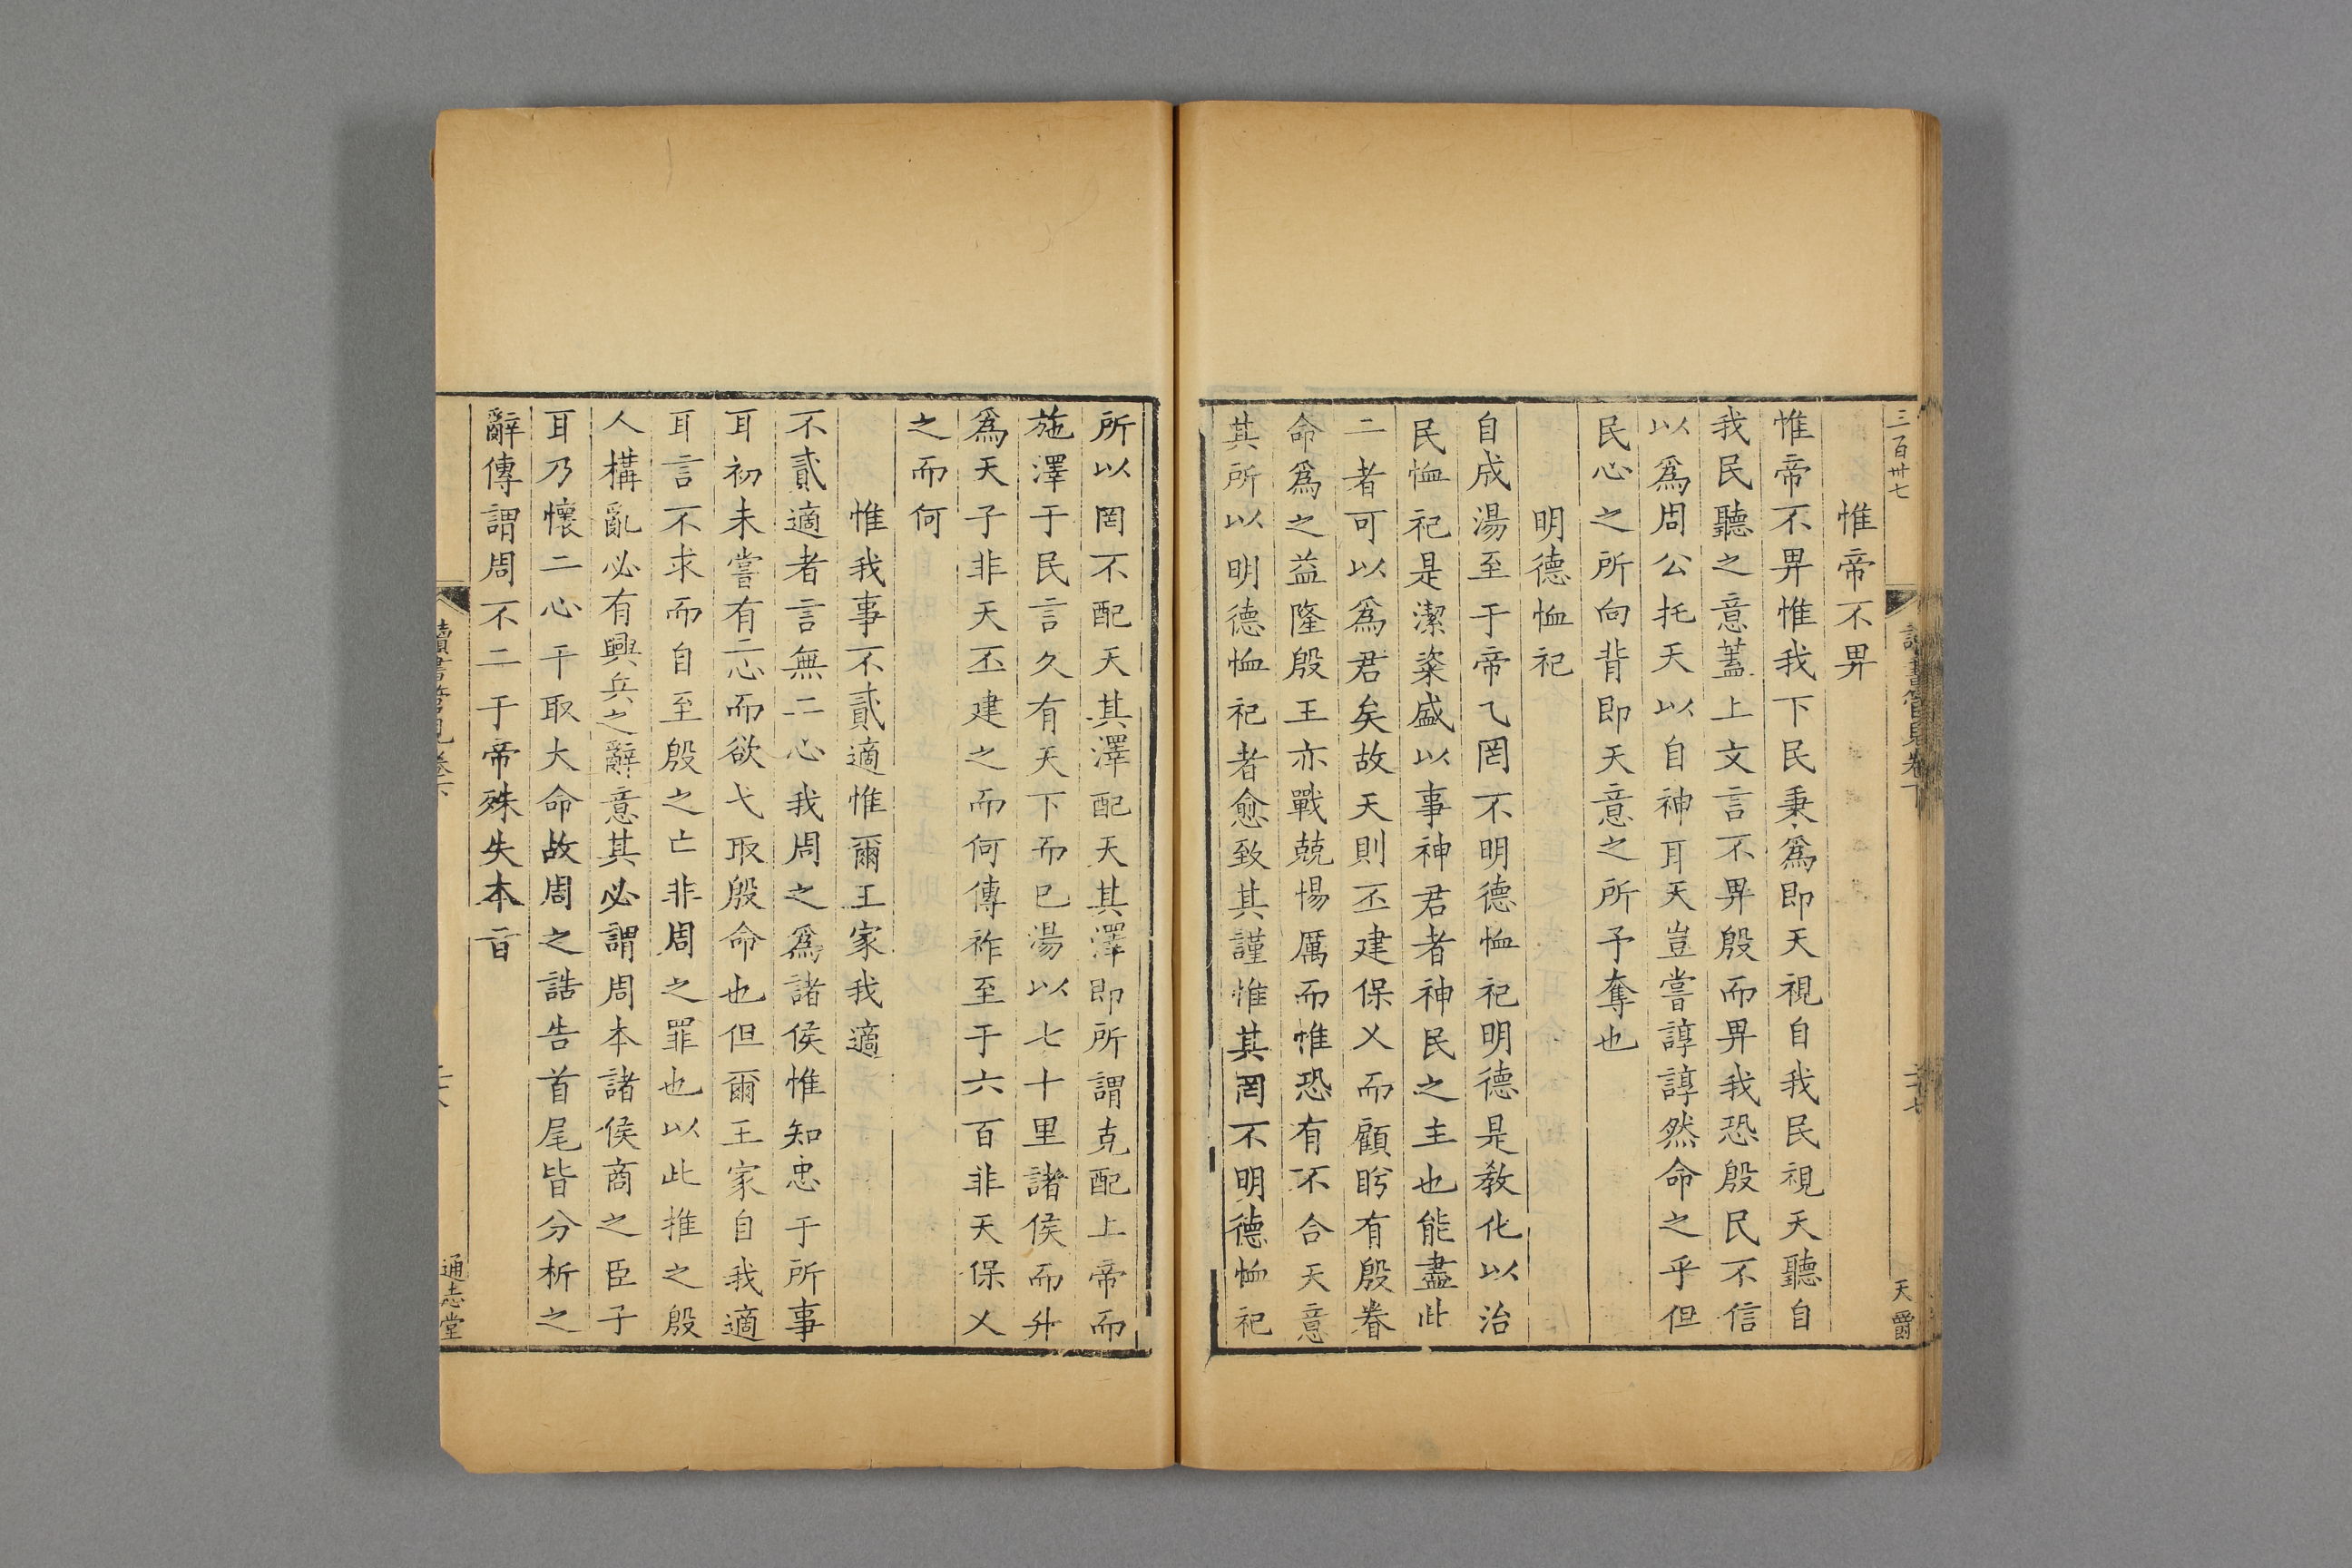 三百卅七
天爵
惟帝不畀
惟帝不畀惟我下民秉爲即天視自我民視天聽自
我民聽之意蓋上文言不畀殷而畀我恐殷民不信
以爲周公托天以自神耳天豈嘗諄諄然命之乎但
民心之所向背即天意之所予奪也
明德恤祀
自成湯至于帝乙罔不明德恤祀明德是教化以治
民恤祀是潔粢盛以事神君者神民之主也能盡此
二者可以爲君矣故天則丕建保乂而顧眄有殷眷
命爲之益隆殷王亦戰兢惕厲而惟恐有不合天意
其所以明德恤祀者愈致其謹惟其罔不明德恤祀
所以罔不配天其澤配天其澤即所謂克配上帝而
施澤于民言久有天下而已湯以七十里諸侯而升
爲天子非天丕建之而何傳祚至于六百非天保乂
之而何
惟我事不貳適惟爾王家我適
不貳適者言無二心我周之爲諸侯惟知忠于所事
耳初未嘗有二心而欲弋取殷命也但爾王家自我適
耳言不求而自至殷之亡非周之罪也以此推之殷
人構亂必有興兵之辭意其必謂周本諸侯商之臣子
耳乃懷二心干取大命故周之誥告首尾皆分析之
辭傳謂周不二于帝殊失本旨
讀書管見卷下
通志堂